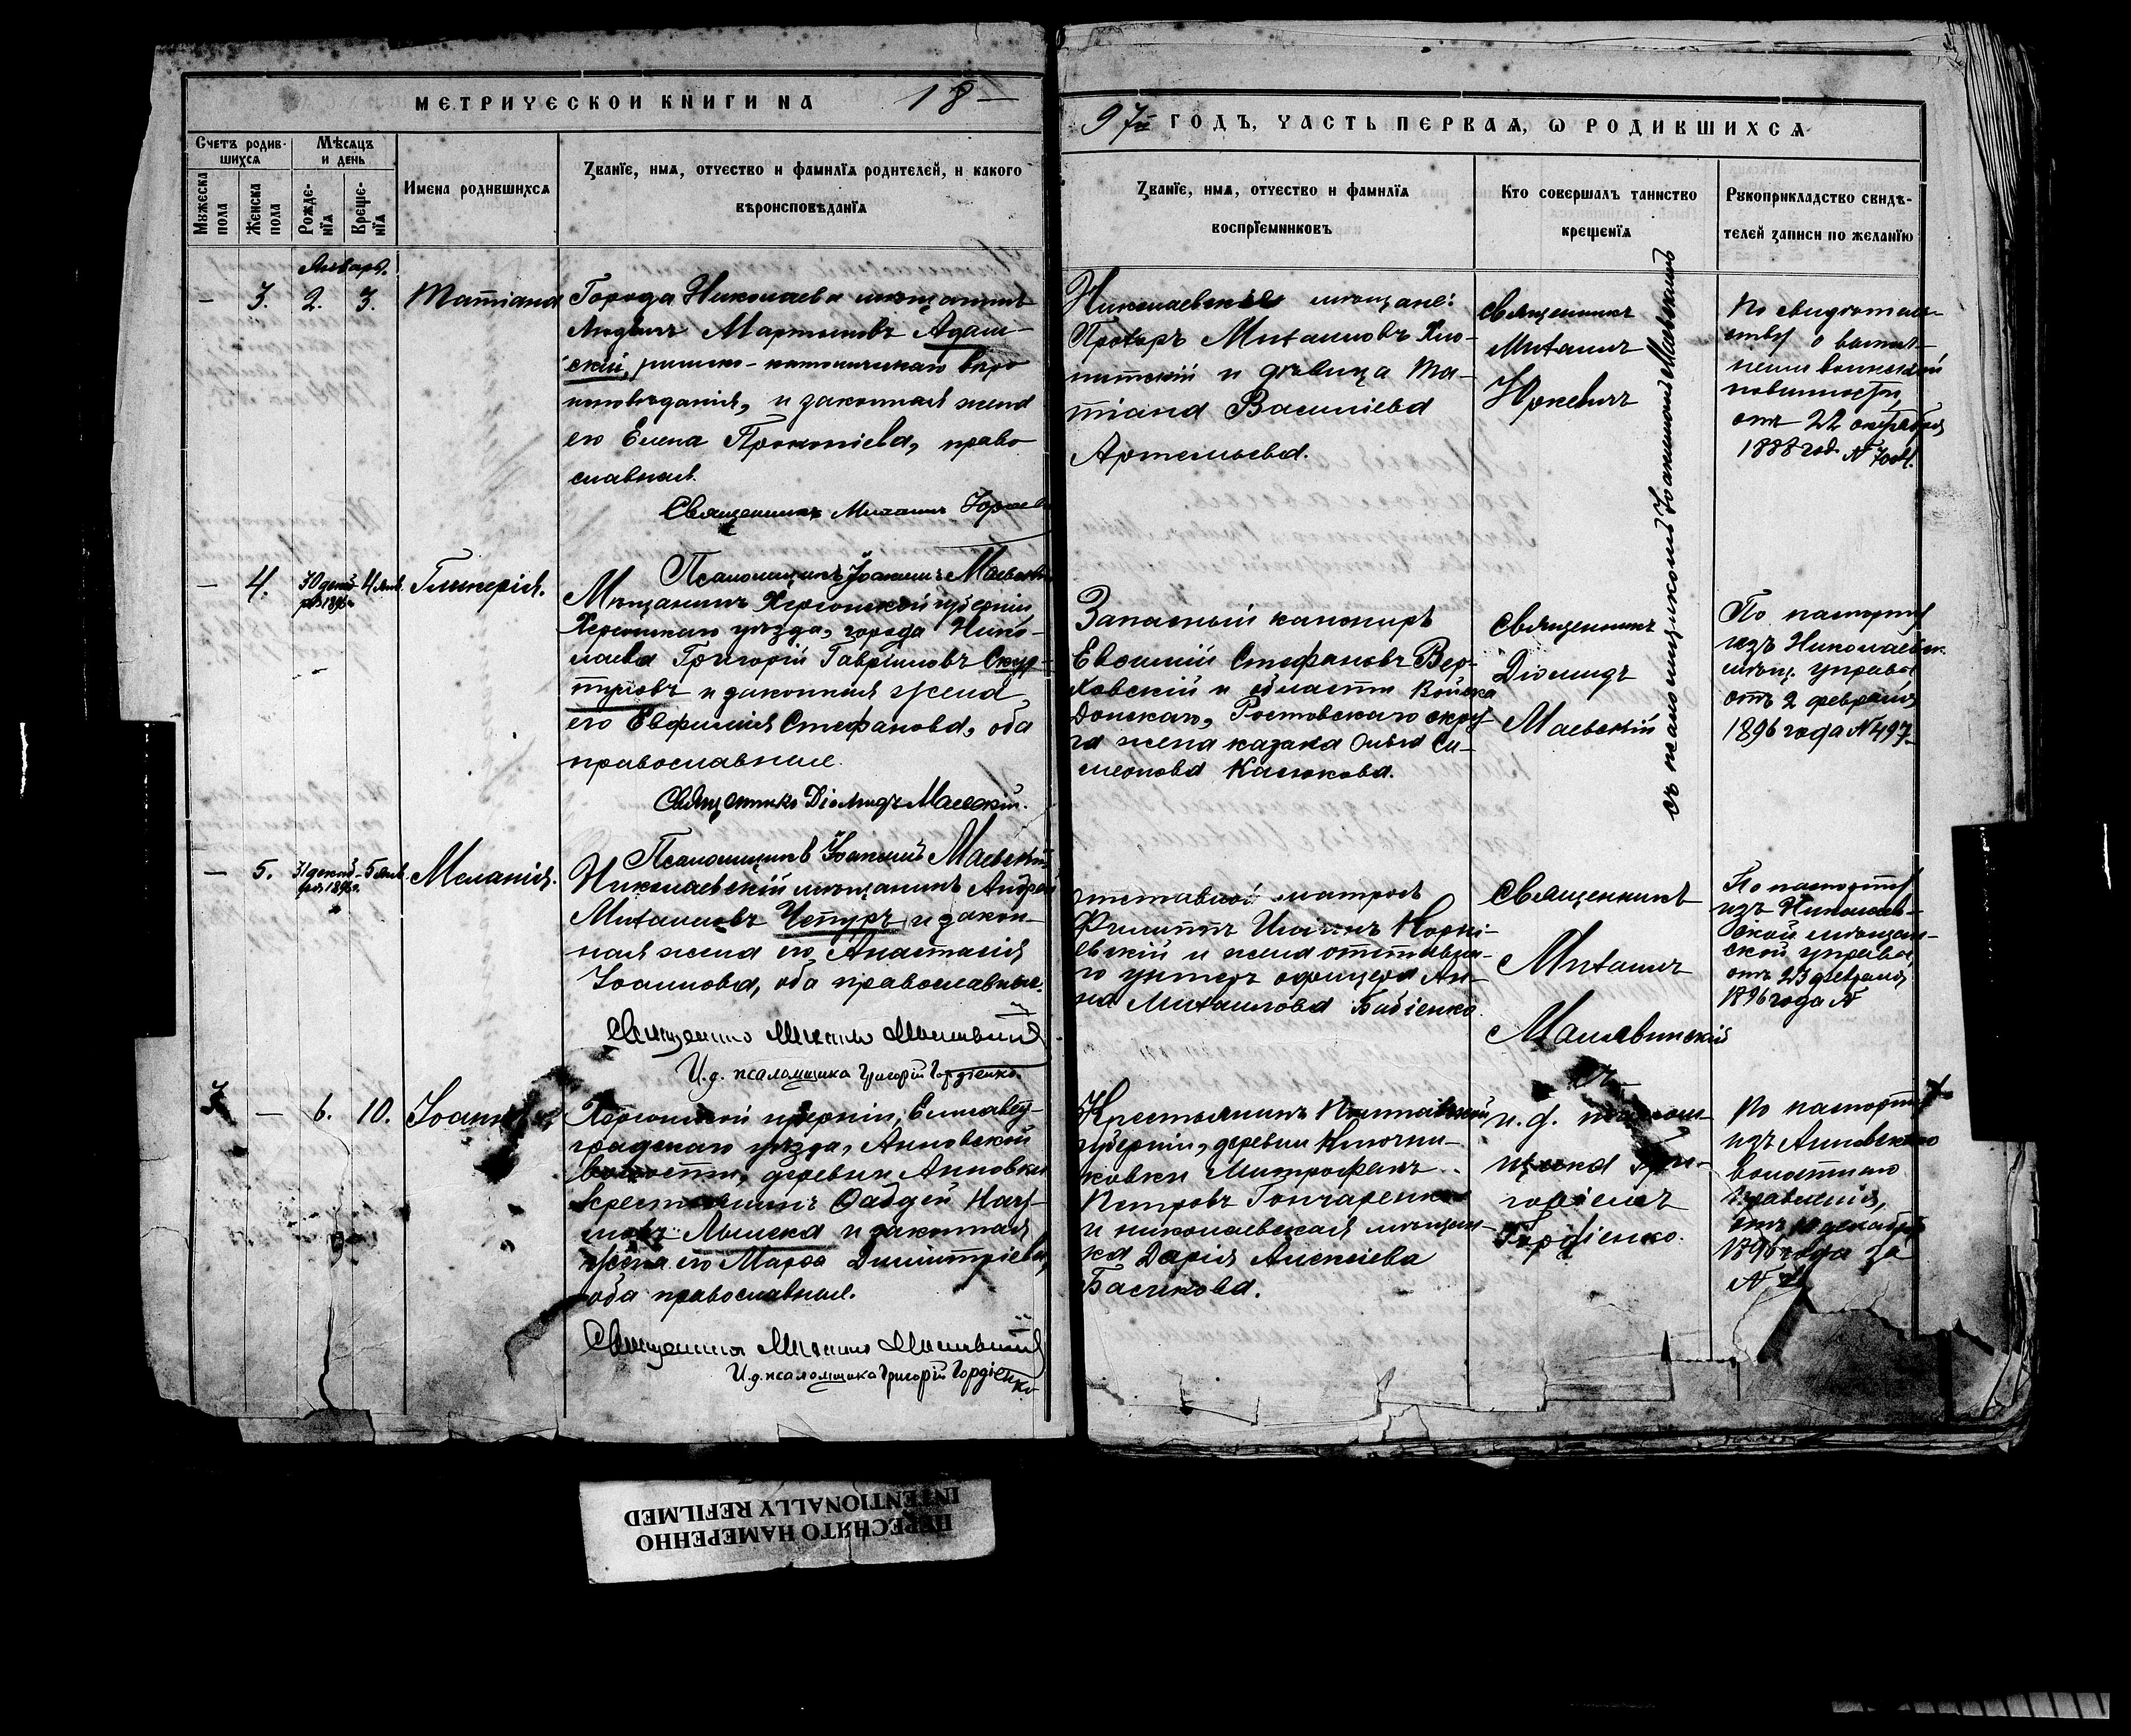 МЕТРИЧЕСКОЙ КНИГИ НА 18—
97й ГОДЪ, ЧАСТЬ ПЕРВАЯ, Ѡ РОДИВШИХСЯ
Счетъ родив-
шихся
Мужеска
пола
Женска
пола
Мѣсяцъ
и день
Рожде-
нїя
Креще-
нїя
Имена родившихся
Званїе, имя, отчество и фамилїя родителей, и какого
вѣроисповѣданїя
Званїе, имя, отчество и фамилїя
воспрїемниковъ
Кто совершалъ таинство
крещенїя
Рукоприкладство свидѣ-
телей записи по желанїю
Январь.
— 3. 2. 3. Татіана
Города Николаева мѣщанинъ
Людвигъ Мартыновъ Адам-
скій, римско-католическаго вѣро
исповѣданія, и законная жена
его Елена Прокопіева, право
славная.
Священникъ Михаилъ
Псаломщикъ Іоакимъ Маевскій
Николаевскіе мѣщане:
Прохоръ Михаиловъ
и дѣвица Та-
тіана Василіева
Артемьева.
Священникъ
Михаилъ
Юркевичъ
съ псаломщикомъ Іоакимомъ Маевскимъ
По свидѣтель-
ству о выпол-
неніи воинской
повинности,
отъ 22 октября
1888 год. №
— 4. 30 декаб-
ря 1896 4 Янв. Гликерія.
Мѣщанинъ Херсонской губерніи
Херсонскаго уѣзда, города Нико-
лаева Григорій Гавріиловъ
и законная жена
его Евфимія Стефанова, оба
православные.
Священникъ Діомидъ Маевскій.
Псаломщикъ Іоакимъ Маевскій
Запасный канониръ
Евфимій Стефановъ Вер-
ховскій и области Войска
Донскаго, Ростовскаго окру-
га жена казака Ольга Си-
меонова Калюкова.
Священникъ
Діомидъ
Маевскій
По паспорту
изъ Николаевск.
мѣщ. управы
отъ 2 февраля
1896 года № 497.
— 5. 31 декаб-
ря 1896г. 5 Янв. Меланія.
Николаевскій мѣщанинъ Андрей
Михаиловъ Чепуръ и закон-
ная жена его Анастасія
Іоаннова, оба православные.
Священникъ Михаилъ
И.д. псаломщика Григорій Гордіенко.
Отставной матросъ
Филиппъ Иліинъ Корни-
евскій и жена отставна-
го унтеръ офицера Ан-
на Михаилова Бабіенко.
Священникъ
Михаилъ
По паспорту
изъ Николаев-
ской мѣщан-
ской управы,
отъ 23 февраля
1896 года №
— 6. 10. Іоаннъ
Херсонской губерніи, Елисавет-
градскаго уѣзда, Анновской
волости, деревни Анновки
крестьянинъ Фаддей
и законная
жена его Марѳа Димитріева,
оба православные.
Священникъ Михаилъ
И.д. псаломщика Григорій Гордіенко
Крестьянинъ Полтавской
губерніи, деревни
Митрофанъ
Петровъ Гончаренко
и николаевская мѣщан-
ка Дарія Алексіева
Басикова.
съ
и. д. псалом-
щика Гри-
горіемъ
Гордіенко.
По паспорту
изъ Анновскаго
волостнаго
правленія,
отъ декабря
1896 года за
№
ПЕРЕСНЯТО НАМЕРЕННО
INTENTIONALLY REFILMED